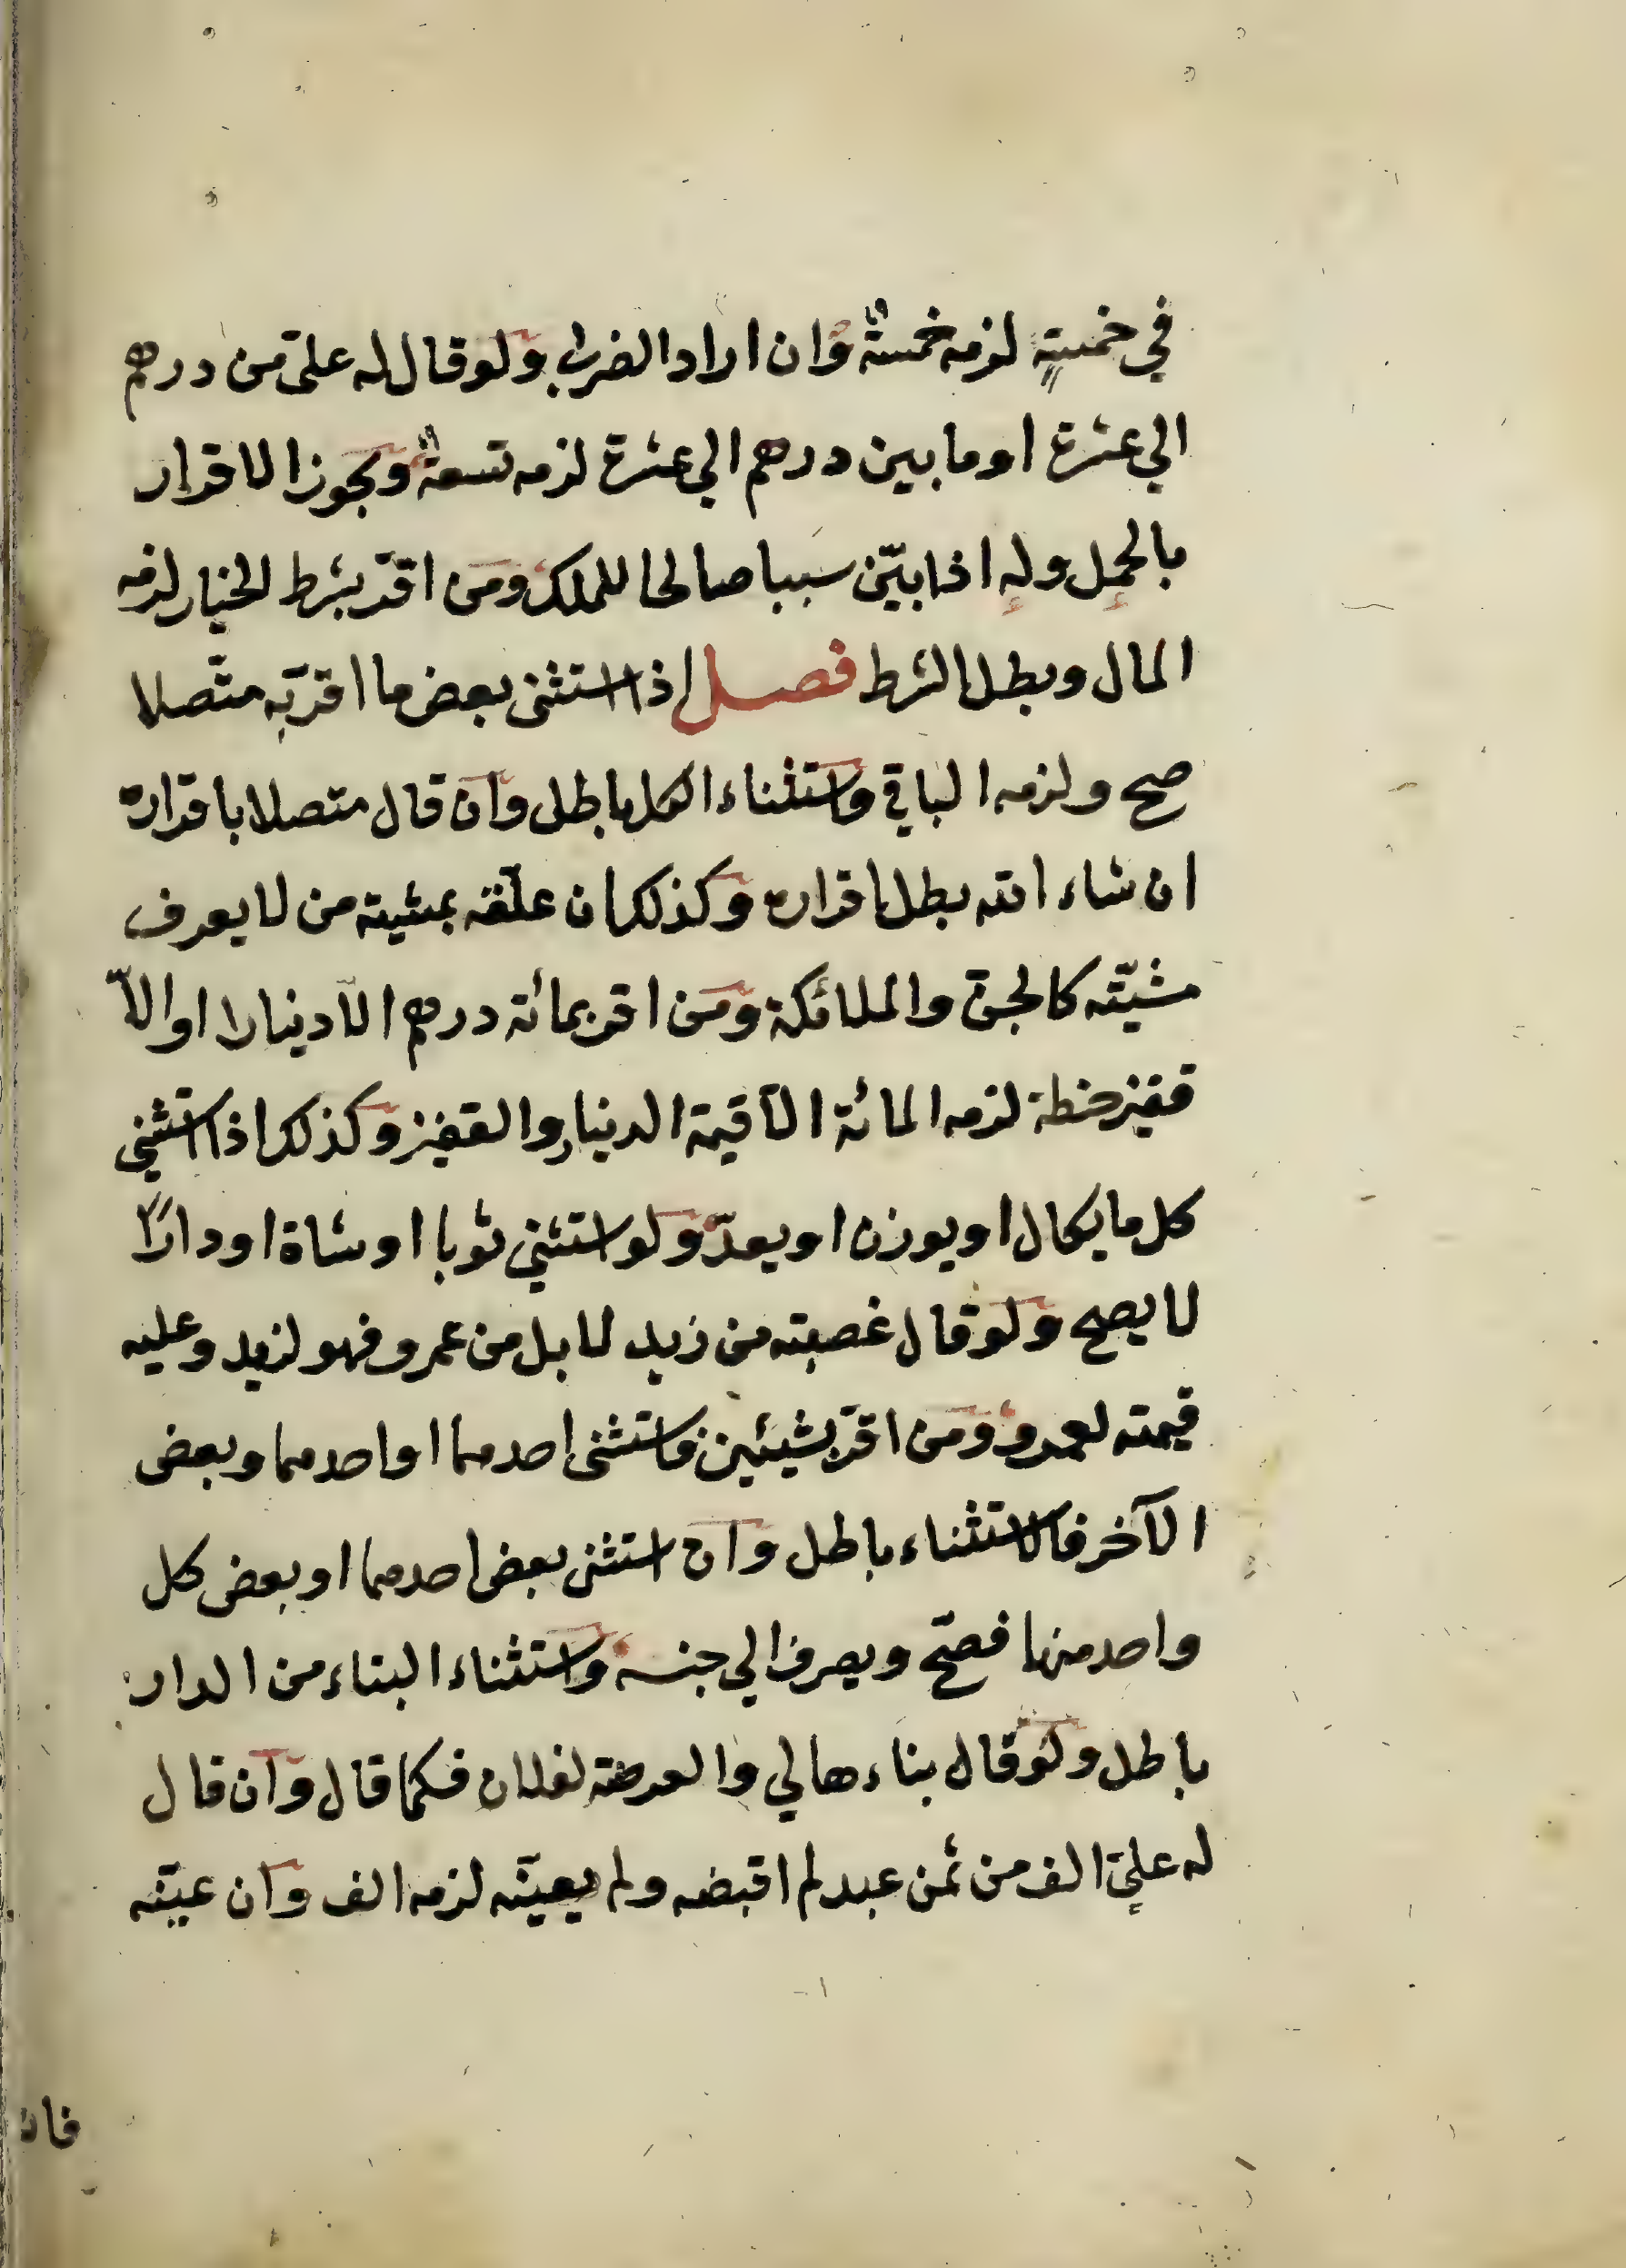 في خمسةٍ لزمه خمسةٌ وان اراد الضرب ولو قال له علىّ من درهم
الي عشرة او ما بين درهم الي عشرة لزمه تسعةٌ ويجوز الاقرار
بالحمل وله اذا بيّن سببا صالحا للملك ومن اقرّ بشرط الخيار لزمه
المال وبطل الشرط فصل اذا استثنى بعض ما اقر به متّصلا
صح ولزمه الباقي واستثناء الكل باطل وان قال متصلا باقراره
ان شاء الله بطل اقراره وكذلك ان علّقه بمشية من لا يعرف
مشيّته كالجنّ والملائكة ومن اقر بمائة درهم الّا دينارا او الاّ
قفيز حنطة لزمه المائة الّا قيمة الدينار والقفيز وكذلك اذا استثني
كل ما يكال او يوزن او يعدّ ولو استثني ثوبا او شاة او دارًا
لا يصح ولو قال غصبته من زيد لا بل من عمرو فهو لزيد وعليه
قيمته لعمرو ومن اقرّ بشيئين فاستثنى احدهما او احدهما وبعض
الآخر فالاستثناء باطل وان استثنى بعض احدهما او بعض كل
واحد منهما فصحّ ويصرف الي جنسه واستثناء البناء من الدار
باطل ولو قال بناءها لي والعرصة لفلان فكما قال وان قال
له عليّ الف من ثمن عبد لم اقبضه ولم يعيّنه لزمه الف وان عيّنه
فان